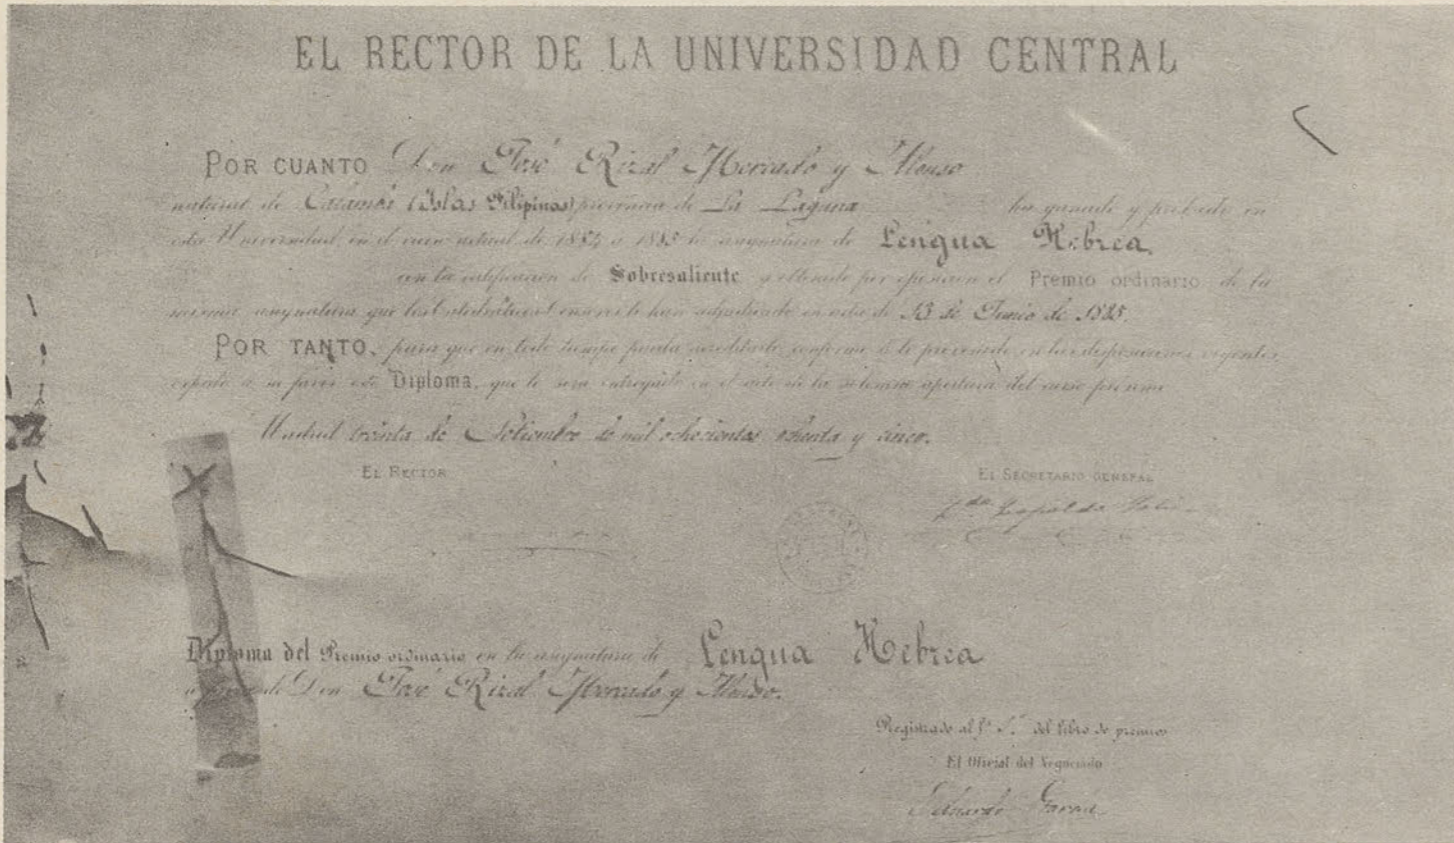 EL RECTOR DE LA UNIVERSIDAD CENTRAL
POR CUANTO Don José Rizal Mercado y Alonso
natural de Calamba (Islas Filipinas) provincia de La Laguna ha ganado y probado en
esta Universidad en el curso actual de 1884 a 1885 la asignatura de Lengua Hebrea,
con la calificación de Sobresaliente y obtenido por oposición el Premio ordinario de la
misma asignatura que los Catedráticos censores le han adjudicado en acta de 13 de Junio de 1885.
POR TANTO, para que en todo tiempo pueda acreditarlo conforme á lo prevenido en las disposiciones vigentes,
expido á su favor este Diploma, que le será entregado en el acto de la solemne apertura del curso próximo
Madrid treinta de Setiembre de mil ochocientos ochenta y cinco.
EL RECTOR
EL SECRETARIO GENERAL
Leopoldo
Diploma del Premio ordinario en la asignatura de Lengua Hebrea
de Don José Rizal Mercado y Alonso.
Registrado al fº 5.º del libro de premios
El Oficial del Negociado
Eduardo